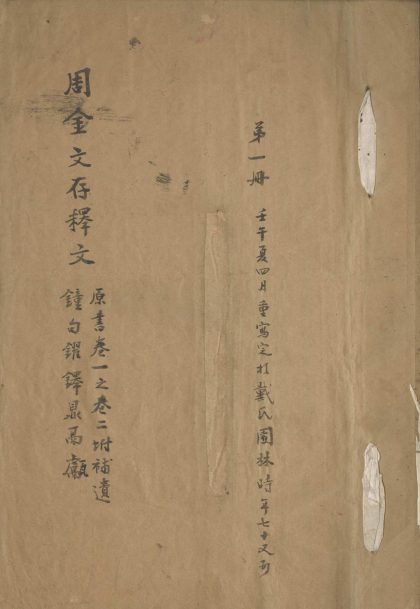 第一冊 壬午夏四月重寫定於戴氏園林時年七十又
周金文存釋文
原書卷一之卷二附補遺
鐘句鑃鐸鼎鬲甗